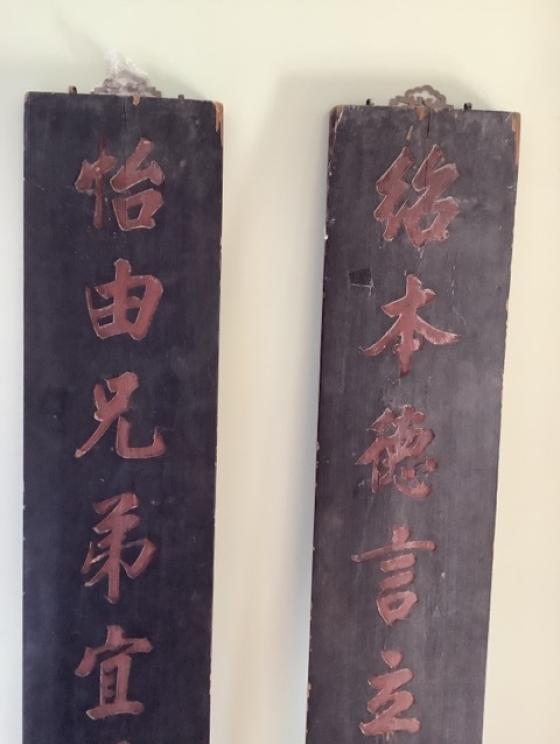 绍本德言立
怡由兄弟宜